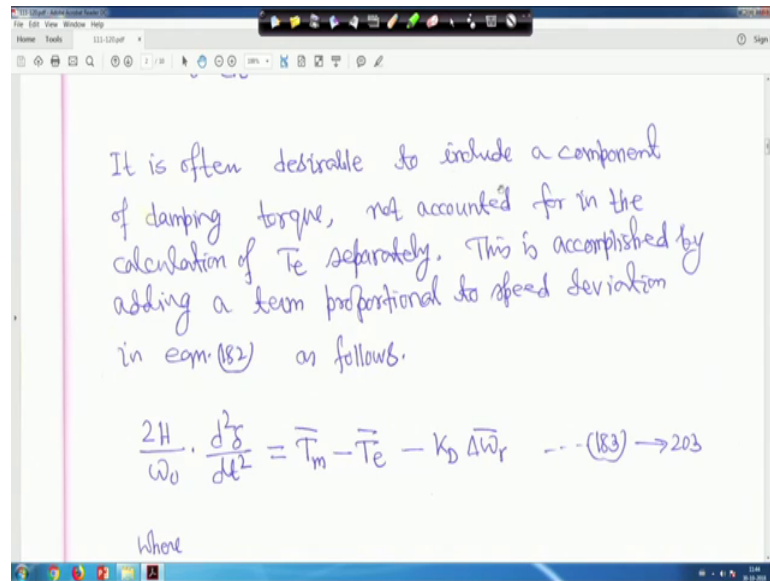 111-120.pdf - Adobe Acrobat Reader DC
File Edit View Window Help
Home Tools 111-120.pdf × Sign
It is often desirable to include a component
of damping torque, not accounted for in the
calculation of Te separately. This is accomplished by
adding a term proportional to speed deviation
in eqn.(182) as follows.
2H/ω₀ · d²δ/dt² = T̅m − T̅e − K_D Δω̅r ---(183) → 203
Where